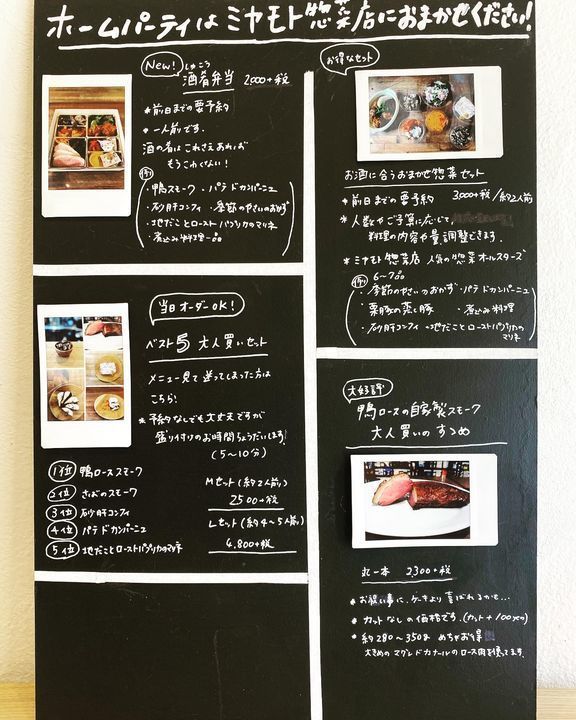 ホームパーティはミヤモト惣菜店におまかせください!
New!
しゅこう
酒肴弁当 2000+税
*前日までの要予約
*一人前です。
酒の肴はこれさえあれば
もうこわくない!
(例)
・鴨スモーク ・パテドカンパーニュ
・砂肝コンフィ ・季節のやさいのおかず
・地だことローストパプリカのマリネ
・煮込み料理一品
当日オーダーOK!
ベスト5 大人買いセット
メニュー見て迷ってしまった方は
こちら!
*予約なしでも大丈夫ですが
盛り付けのお時間ちょうだいします!
(5〜10分)
1位 鴨ローススモーク
2位 さばのスモーク
3位 砂肝コンフィ
4位 パテドカンパーニュ
5位 地だことローストパプリカのマリネ
Mセット(約2人前)
2500+税
Lセット(約4〜5人前)
4,800+税
お得なセット
お酒に合うおまかせ惣菜セット
*前日までの要予約 3,000+税/約2人前
*人数やご予算に応じて、
料理の内容や量、調整できます。
*ミヤモト惣菜店 人気の惣菜オールスターズ
6〜7品
(例)
・季節のやさいのおかず ・パテドカンパーニュ
・栗豚の蒸し豚 ・煮込み料理
・砂肝コンフィ ・地だことローストパプリカのマリネ
大好評
鴨ロースの自家製スモーク
大人買いのすすめ
丸一本 2300+税
*お祝い事に、ケーキより喜ばれるかも…
*カットなしの価格です。(カット+100yen)
*約280〜350g めちゃお得
大きめのマグレドカナールのロース肉を使ってます。